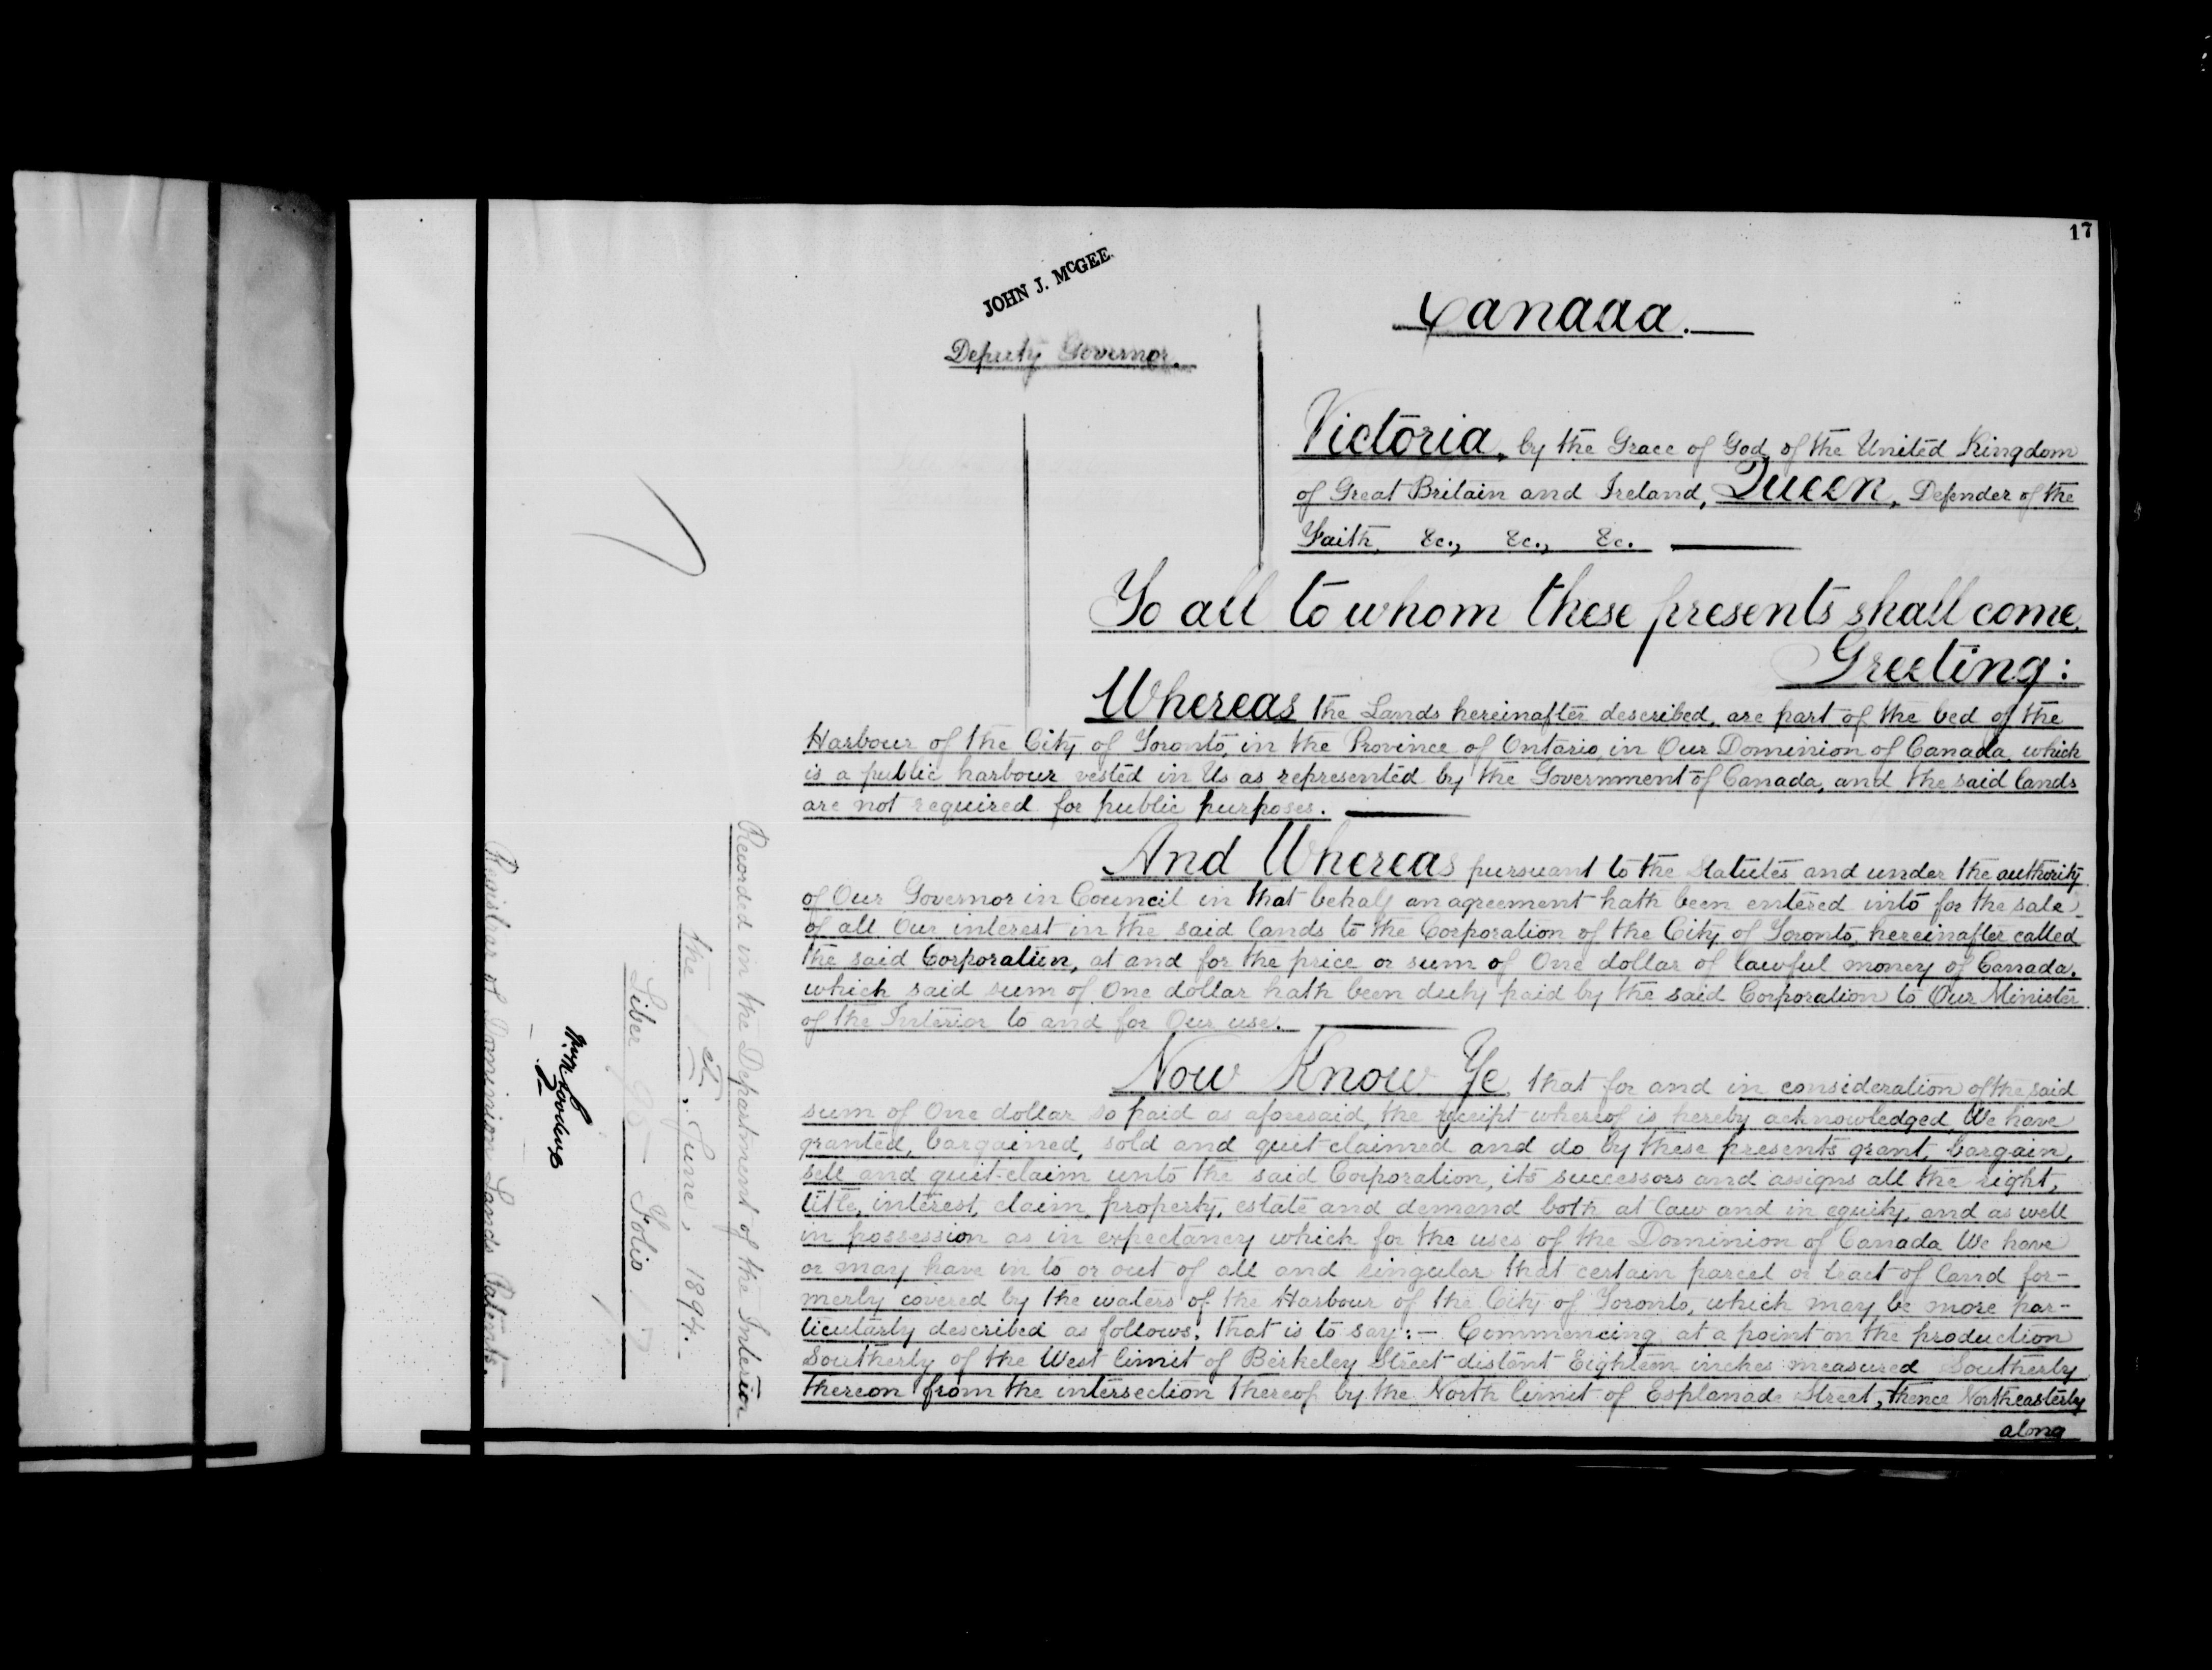 17
JOHN J. McGEE.
Deputy Governor.
Canada.
Victoria, by the Grace of God, of the United Kingdom
of Great Britain and Ireland, Queen, Defender of the
Faith, &c., &c., &c.
To all to whom these presents shall come,
Greeting:
Whereas the Lands hereinafter described, are part of the bed of the
Harbour of the City of Toronto, in the Province of Ontario, in Our Dominion of Canada, which
is a public harbour vested in Us as represented by the Government of Canada, and the said lands
are not required for public purposes.
And Whereas pursuant to the Statutes and under the authority
of Our Governor in Council in that behalf an agreement hath been entered into for the sale
of all Our interest in the said lands to the Corporation of the City of Toronto, hereinafter called
the said Corporation, at and for the price or sum of One dollar of lawful money of Canada,
which said sum of One dollar hath been duly paid by the said Corporation to Our Minister
of the Interior to and for Our use.
Now Know Ye, that for and in consideration of the said
sum of One dollar so paid as aforesaid, the receipt whereof is hereby acknowledged, We have
granted, bargained, sold and quit claimed and do by these presents grant, bargain,
sell and quit-claim unto the said Corporation, its successors and assigns all the right,
title, interest, claim, property, estate and demand both at law and in equity, and as well
in possession as in expectancy which for the uses of the Dominion of Canada We have
or may have in to or out of all and singular that certain parcel or tract of land for-
merly covered by the waters of the Harbour of the City of Toronto, which may be more par-
ticularly described as follows, that is to say:- Commencing at a point on the production
Southerly of the West limit of Berkeley Street distant Eighteen inches measured Southerly
thereon from the intersection thereof by the North limit of Esplanade Street, thence Northeasterly
along
Recorded in the Department of the Interior
the June, 1894.
Liber 95 Folio 17
Registrar of Dominion Lands Patents.